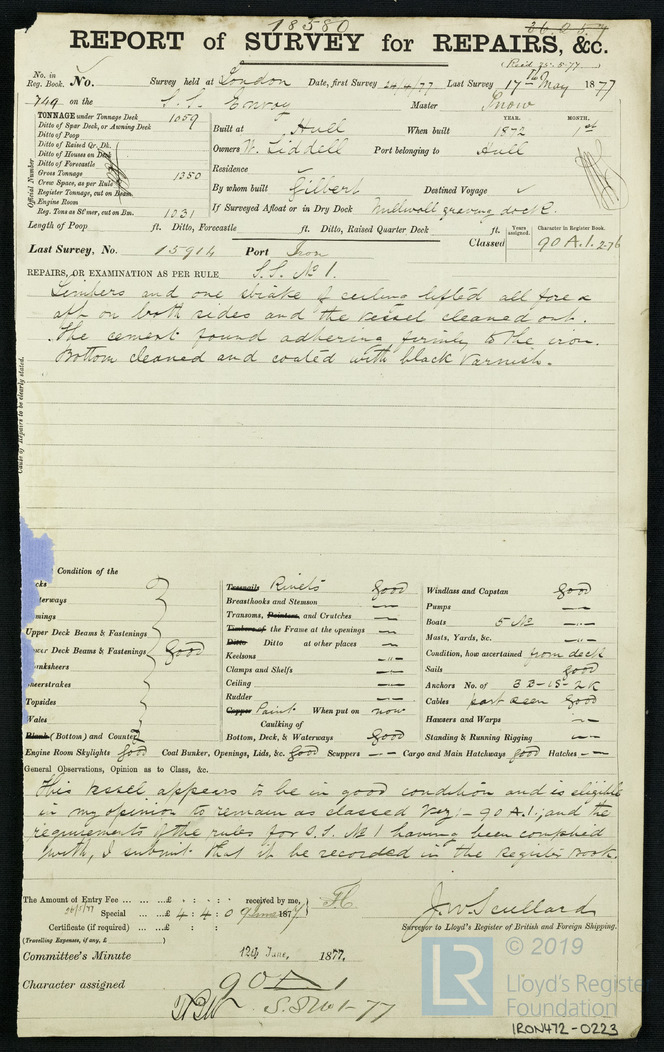 18580
26.05.7
REPORT of SURVEY for REPAIRS, &c.
No. in Reg. Book. No. Survey held at London Date, first Survey 24/4/77 Last Survey 17th May 1877
749 on the S.S. Envoy Master Snow
TONNAGE under Tonnage Deck 1059
Ditto of Spar Deck, or Awning Deck
Ditto of Poop
Ditto of Raised Qr. Dk.
Ditto of Houses on Deck
Ditto of Forecastle
Gross Tonnage 1350
Crew Space, as per Rule
Register Tonnage, cut on Beam
Engine Room
Reg. Tons as St'mer, cut on Bm. 1031
Official Number
Built at Hull When built YEAR. 1872 MONTH.
Owners W. Liddell Port belonging to Hull
Residence
By whom built Gilbert Destined Voyage
If Surveyed Afloat or in Dry Dock Millwall graving dock.
Length of Poop ft. Ditto, Forecastle ft. Ditto, Raised Quarter Deck ft.
Last Survey, No. 15914 Port Iron Classed Years assigned. Character in Register Book. 90 A.1. 2-76
REPAIRS, OR EXAMINATION AS PER RULE S.S. No 1.
Limbers and one strake of ceiling lifted all fore &
aft on both sides and the vessel cleaned out.
The cement found adhering firmly to the iron.
Bottom cleaned and coated with black varnish.
Cause of Repairs to be clearly stated.
Condition of the
cks
terways
mings
Upper Deck Beams & Fastenings
wer Deck Beams & Fastenings Good
anksheers
heerstrakes
Topsides
Wales
Plank (Bottom) and Counter
Treenails Rivets Good
Breasthooks and Stemson
Transoms, Pointers, and Crutches
Timbers of the Frame at the openings
Ditto Ditto at other places
Keelsons
Clamps and Shelfs
Ceiling
Rudder
Copper Paint When put on now
Caulking of
Bottom, Deck, & Waterways Good
Windlass and Capstan Good
Pumps
Boats 5 No
Masts, Yards, &c.
Condition, how ascertained from deck
Sails Good
Anchors No. of 3 B-1S-2K
Cables part seen Good
Hawsers and Warps
Standing & Running Rigging
Engine Room Skylights Good Coal Bunker, Openings, Lids, &c. Good Scuppers Cargo and Main Hatchways Good Hatches
General Observations, Opinion as to Class, &c.
This vessel appears to be in good condition and is eligible
in my opinion to remain as classed viz:- 90 A.1.; and the
requirements of the rules for S.S. No 1 having been complied
with, I submit that it be recorded in the Register Book.
The Amount of Entry Fee ... ... £ : : received by me,
Special ... ... £ 4 : 4 : 0 9 June 1877
Certificate (if required) ... £ : :
(Travelling Expenses, if any, £ )
J. W. Scullard
Surveyor to Lloyd's Register of British and Foreign Shipping.
Committee's Minute 12th June, 1877.
Character assigned 90 A 1
S.S No 1-77
LR
© 2019
Lloyd's Register
Foundation
IRON472-0223